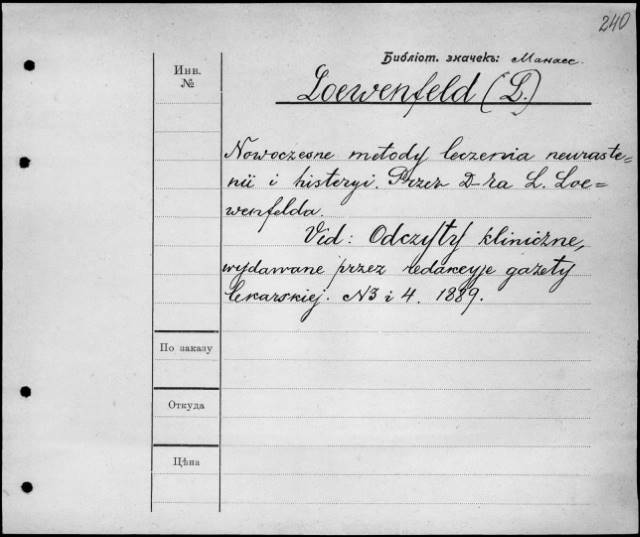 240
Библіот. значекъ: Манасс.
Инв.
№
Loewenfeld (L.)
Nowoczesne metody leczenia neuraste=
nii i histeryi. Przez D-ra L. Loe=
wenfelda.
Vid: Odczyty kliniczne,
wydawane przez redakcyje gazety
lekarskiej. N3 i 4. 1889.
По заказу
Откуда
Цѣна